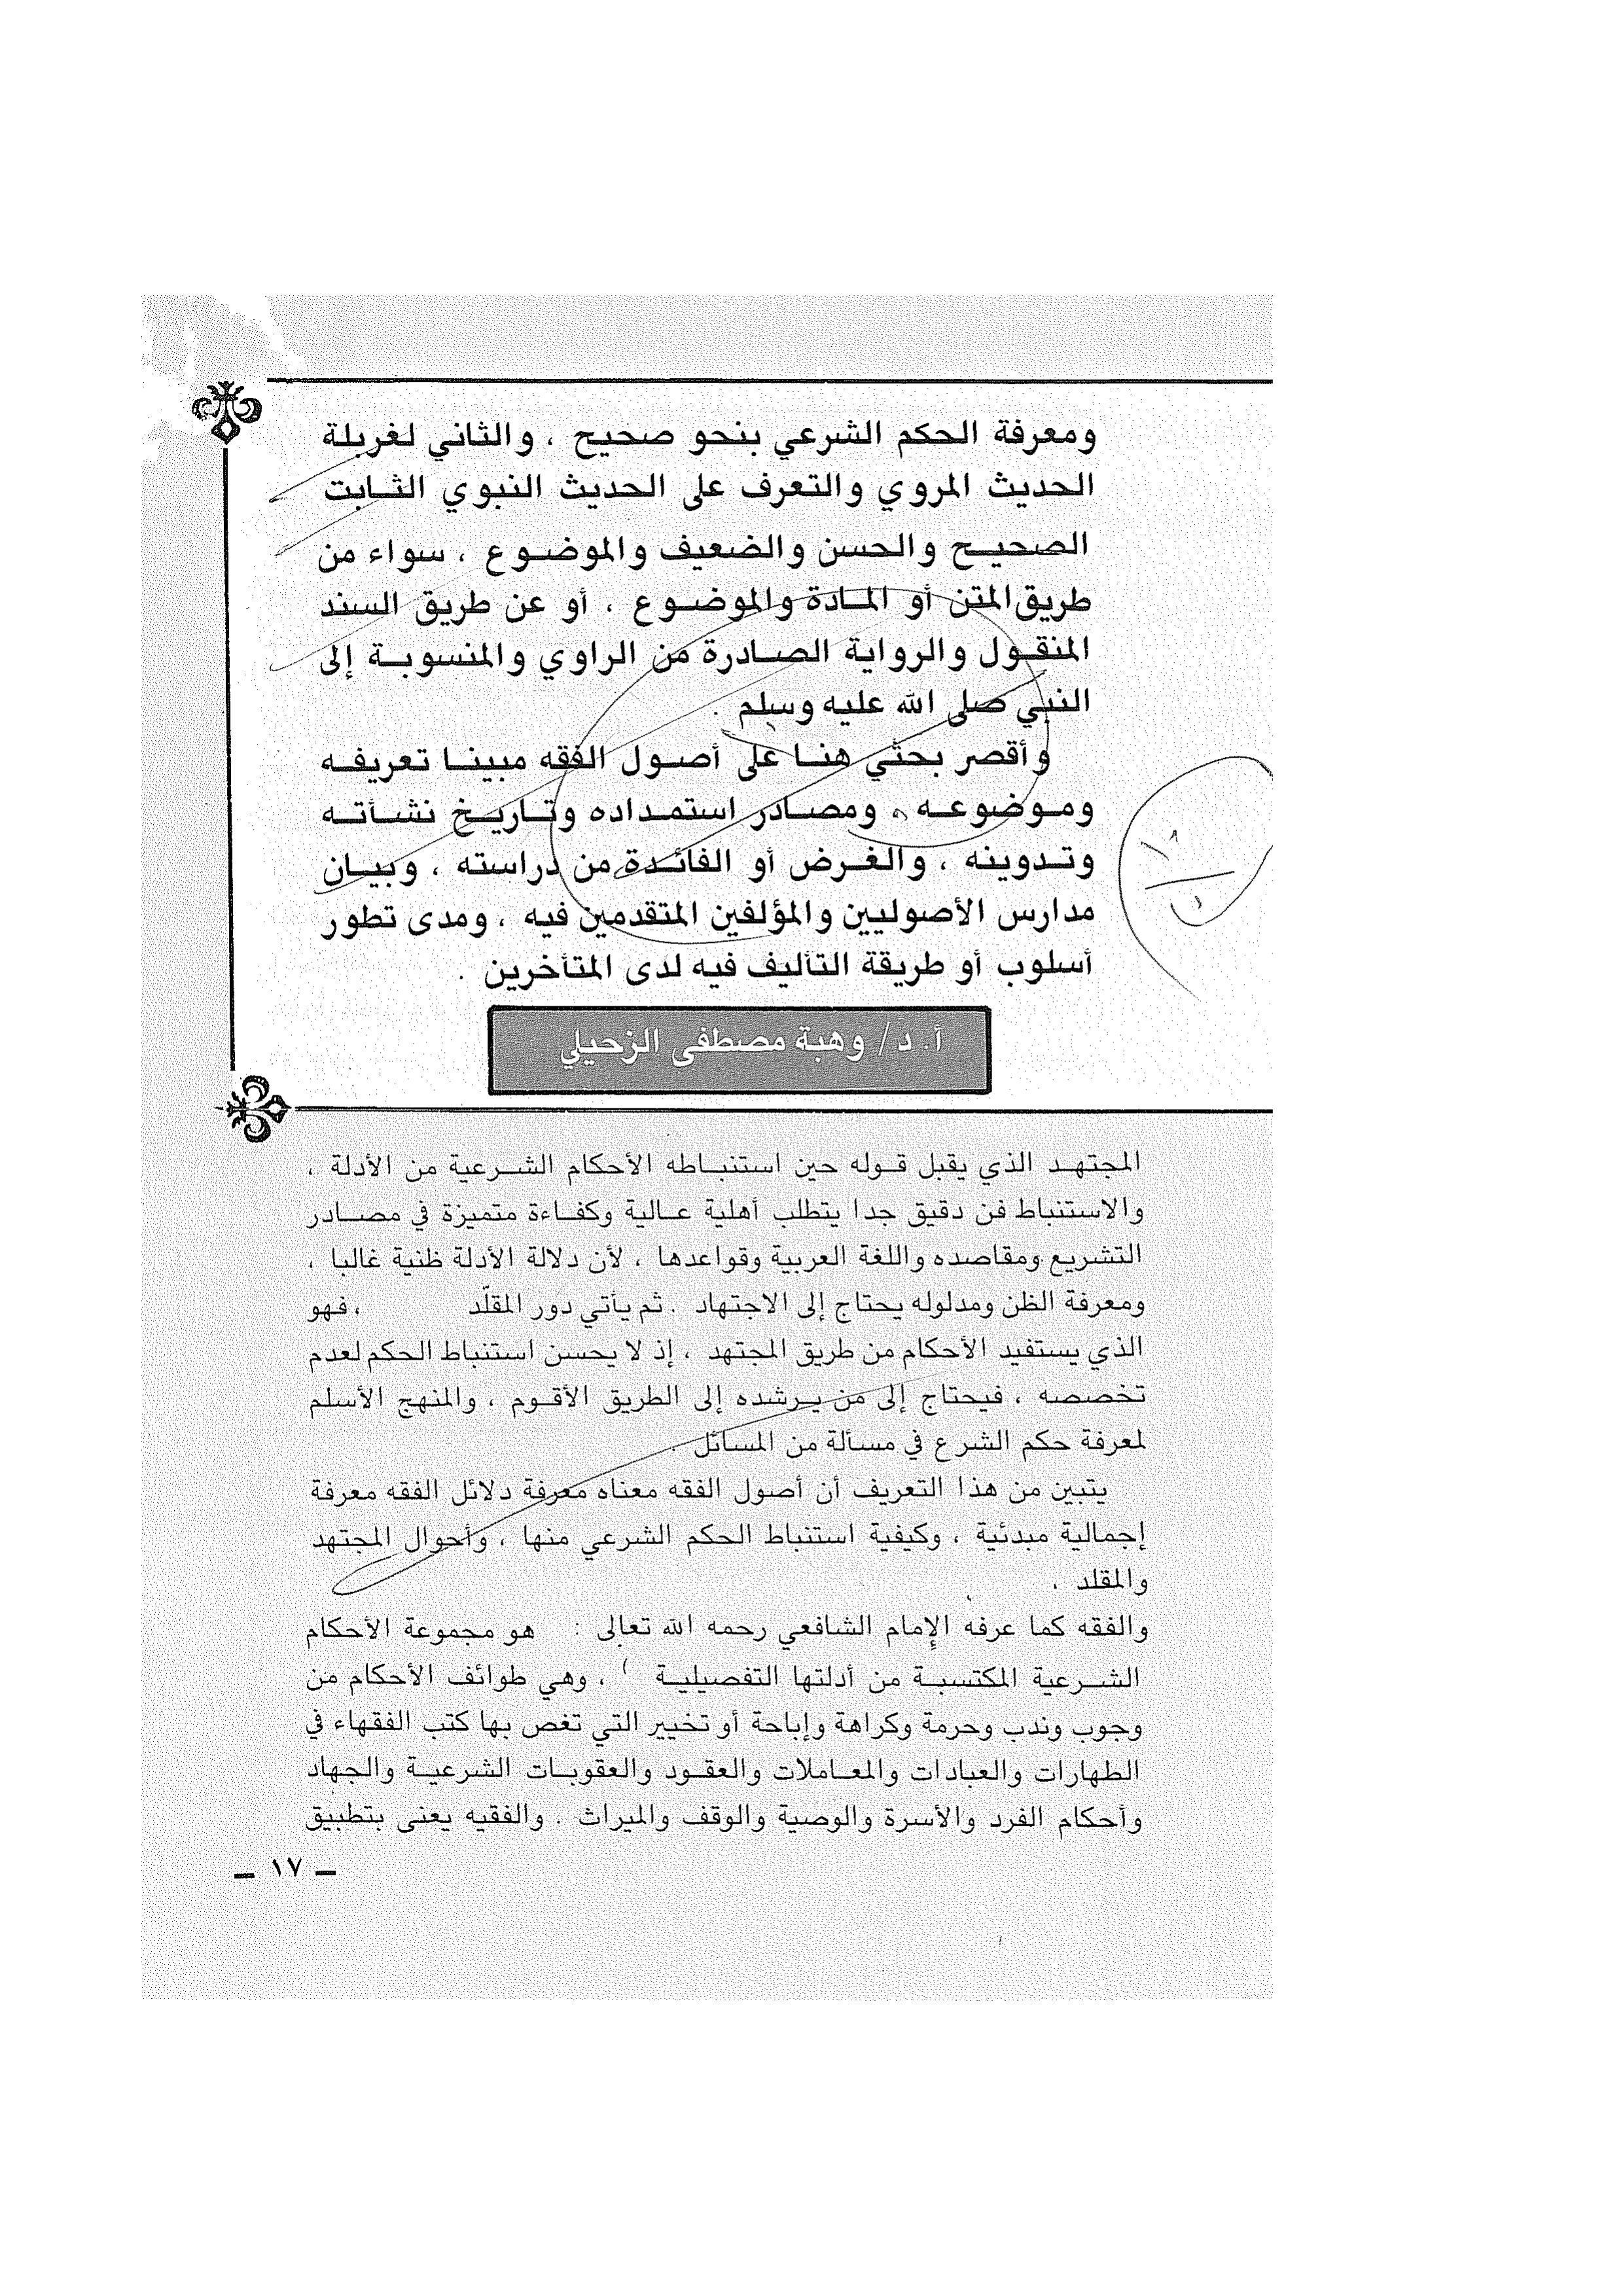 ومعرفة الحكم الشرعي بنحو صحيح ، والثاني لغربلة
الحديث المروي والتعرف على الحديث النبوي الثابت
الصحيح والحسن والضعيف والموضوع ، سواء من
طريق المتن أو المادة والموضوع ، أو عن طريق السند
المنقول والرواية الصادرة من الراوي والمنسوبة إلى
النبي صلى الله عليه وسلم .
وأقصر بحثي هنا على أصول الفقه مبينا تعريفه
وموضوعه ، ومصادر استمداده وتاريخ نشأته
وتدوينه ، والغرض أو الفائدة من دراسته ، وبيان
مدارس الأصوليين والمؤلفين المتقدمين فيه ، ومدى تطور
أسلوب أو طريقة التأليف فيه لدى المتأخرين .
أ. د/ وهبة مصطفى الزحيلي
المجتهد الذي يقبل قوله حين استنباطه الأحكام الشرعية من الأدلة ،
والاستنباط فن دقيق جدا يتطلب أهلية عالية وكفاءة متميزة في مصادر
التشريع ومقاصده واللغة العربية وقواعدها ، لأن دلالة الأدلة ظنية غالبا ،
ومعرفة الظن ومدلوله يحتاج إلى الاجتهاد . ثم يأتي دور المقلّد ، فهو
الذي يستفيد الأحكام من طريق المجتهد ، إذ لا يحسن استنباط الحكم لعدم
تخصصه ، فيحتاج إلى من يرشده إلى الطريق الأقوم ، والمنهج الأسلم
لمعرفة حكم الشرع في مسألة من المسائل .
يتبين من هذا التعريف أن أصول الفقه معناه معرفة دلائل الفقه معرفة
إجمالية مبدئية ، وكيفية استنباط الحكم الشرعي منها ، وأحوال المجتهد
والمقلد .
والفقه كما عرفه الإمام الشافعي رحمه الله تعالى : هو مجموعة الأحكام
الشرعية المكتسبة من أدلتها التفصيلية ) ، وهي طوائف الأحكام من
وجوب وندب وحرمة وكراهة وإباحة أو تخيير التي تغص بها كتب الفقهاء في
الطهارات والعبادات والمعاملات والعقود والعقوبات الشرعية والجهاد
وأحكام الفرد والأسرة والوصية والوقف والميراث . والفقيه يعنى بتطبيق
ـ ١٧ ـ